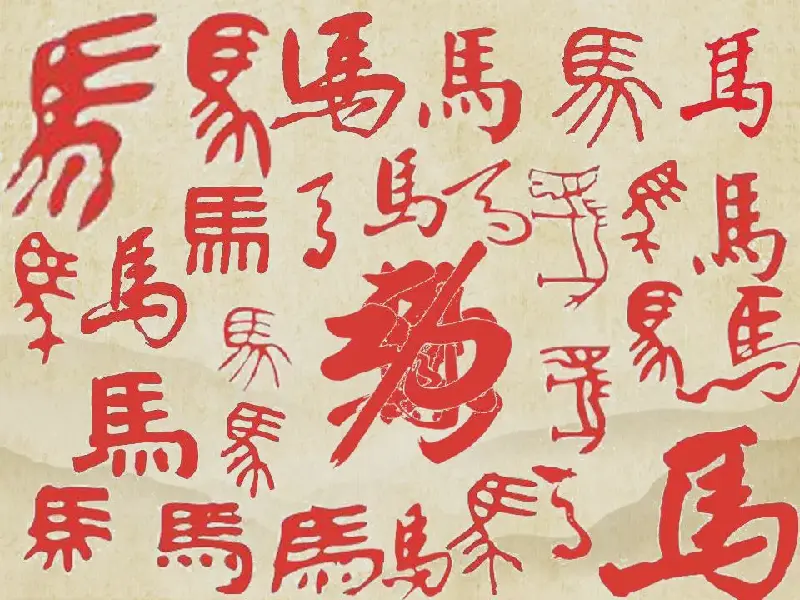 馬 馬 馬 馬 馬 馬
馬 馬 馬 馬 馬 馬 馬
馬 馬 馬 馬 馬
馬
馬 馬 馬
馬 馬 馬 馬 馬 馬 馬